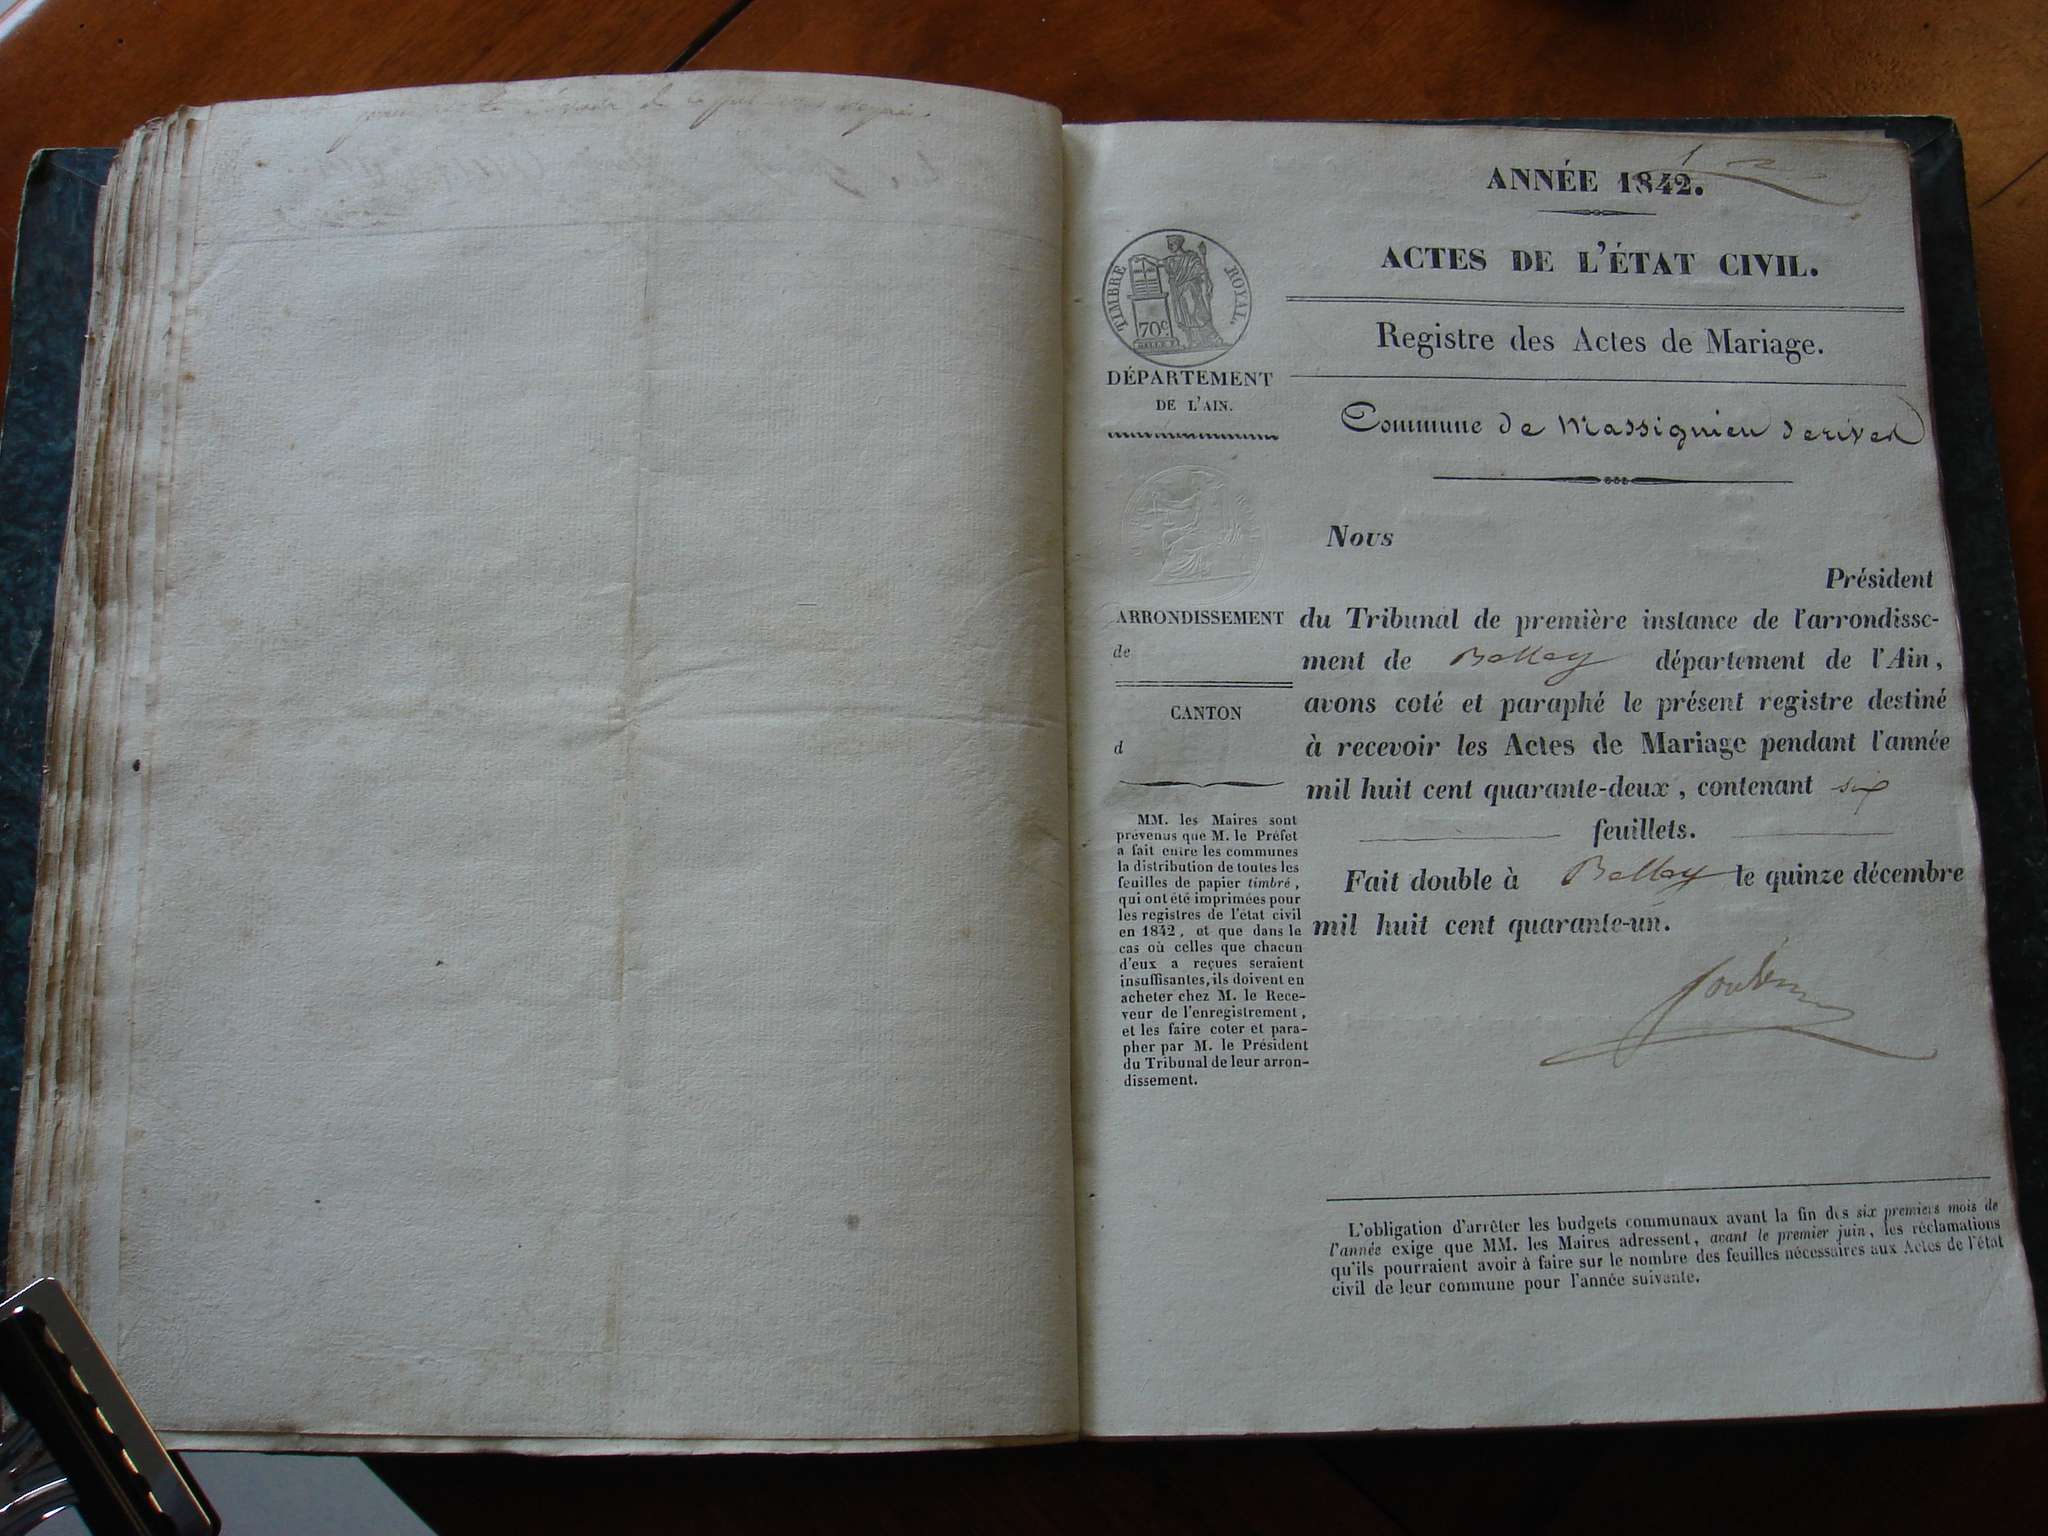 ANNÉE 1842.
ACTES DE L'ÉTAT CIVIL.
Registre des Actes de Mariage.
Commune de Massignieu derives
TIMBRE ROYAL.
70c
DÉPARTEMENT
DE L'AIN.
ARRONDISSEMENT
de
CANTON
d
MM. les Maires sont
prévenus que M. le Préfet
a fait entre les communes
la distribution de toutes les
feuilles de papier timbré,
qui ont été imprimées pour
les registres de l'état civil
en 1842, et que dans le
cas où celles que chacun
d'eux a reçues seraient
insuffisantes, ils doivent en
acheter chez M. le Rece-
veur de l'enregistrement,
et les faire coter et para-
pher par M. le Président
du Tribunal de leur arron-
dissement.
Nous
Président
du Tribunal de première instance de l'arrondisse-
ment de Belley département de l'Ain,
avons coté et paraphé le présent registre destiné
à recevoir les Actes de Mariage pendant l'année
mil huit cent quarante-deux, contenant six
feuillets.
Fait double à Belley le quinze décembre
mil huit cent quarante-un.
L'obligation d'arrêter les budgets communaux avant la fin des six premiers mois de
l'année exige que MM. les Maires adressent, avant le premier juin, les réclamations
qu'ils pourraient avoir à faire sur le nombre des feuilles nécessaires aux Actes de l'état
civil de leur commune pour l'année suivante.